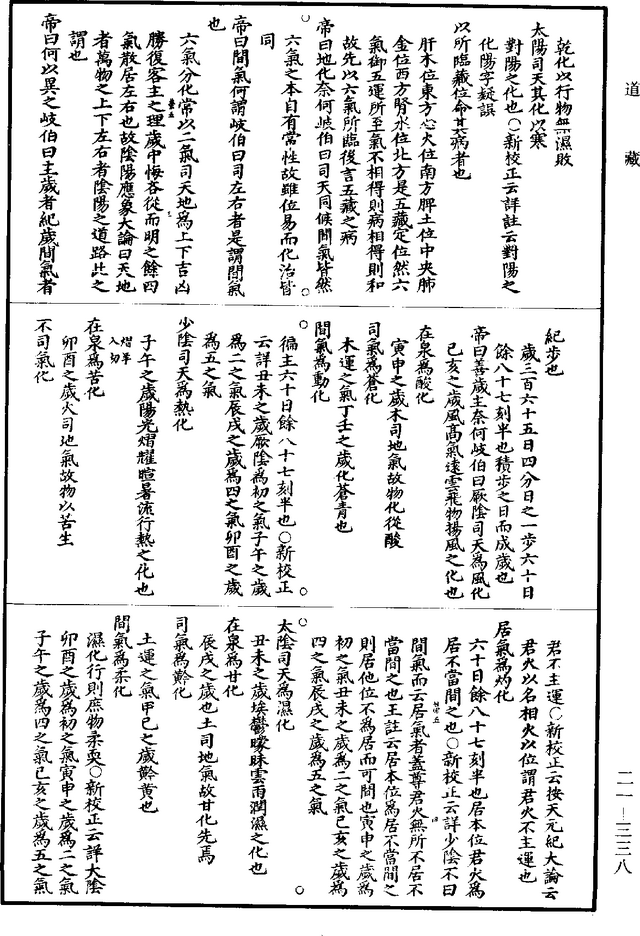 道藏
乾化以行物無濕敗
太陽司天其化以寒
對陽之化也○新校正云詳註云對陽之
化陽字疑誤
以所臨藏位命其病者也
肝木位東方心火位南方脾土位中央肺
金位西方腎水位北方是五藏定位然六
氣御五運所至氣不相得則病相得則和
故先以六氣所臨後言五藏之病
帝曰地化奈何岐伯曰司天同候間氣皆然
六氣之本自有常性故雖位易而化治皆
同
帝曰間氣何謂岐伯曰司左右者是謂間氣
也
六氣分化常以二氣司天地為上下吉凶
勝復客主之理歲中悔吝從而明之餘四
氣散居左右也故陰陽應象大論曰天地
者萬物之上下左右者陰陽之道路此之
謂也
帝曰何以異之岐伯曰主歲者紀歲間氣者
紀步也
歲三百六十五日四分日之一步六十日
餘八十七刻半也積步之日而成歲也
帝曰善歲主奈何岐伯曰厥陰司天為風化
巳亥之歲風高氣遠雲飛物揚風之化也
在泉為酸化
寅申之歲木司地氣故物化從酸
司氣為蒼化
木運之氣丁壬之歲化蒼青也
間氣為動化
徧主六十日餘八十七刻半也○新校正
云詳丑未之歲厥陰為初之氣子午之歲
為二之氣辰戌之歲為四之氣卯酉之歲
為五之氣
少陰司天為熱化
子午之歲陽光熠耀暄暑流行熱之化也
熠羊入切
在泉為苦化
卯酉之歲火司地氣故物以苦生
不司氣化
君不主運○新校正云按天元紀大論云
君火以名相火以位謂君火不主運也
居氣為灼化
六十日餘八十七刻半也居本位君火為
居不當間之也○新校正云詳少陰不曰
間氣而云居氣者蓋尊君火無所不居不
當間之也王註云居本位為居不當間之
則居他位不為居而可間也寅申之歲為
初之氣丑未之歲為二之氣巳亥之歲為
四之氣辰戌之歲為五之氣
太陰司天為濕化
丑未之歲埃鬱曚昧雲雨潤濕之化也
在泉為甘化
辰戌之歲也土司地氣故甘化先焉
司氣為黅化
土運之氣甲己之歲黅黄也
間氣為柔化
濕化行則庶物柔耎○新校正云詳太陰
卯酉之歲為初之氣寅申之歲為二之氣
子午之歲為四之氣巳亥之歲為五之氣
二一—三三八